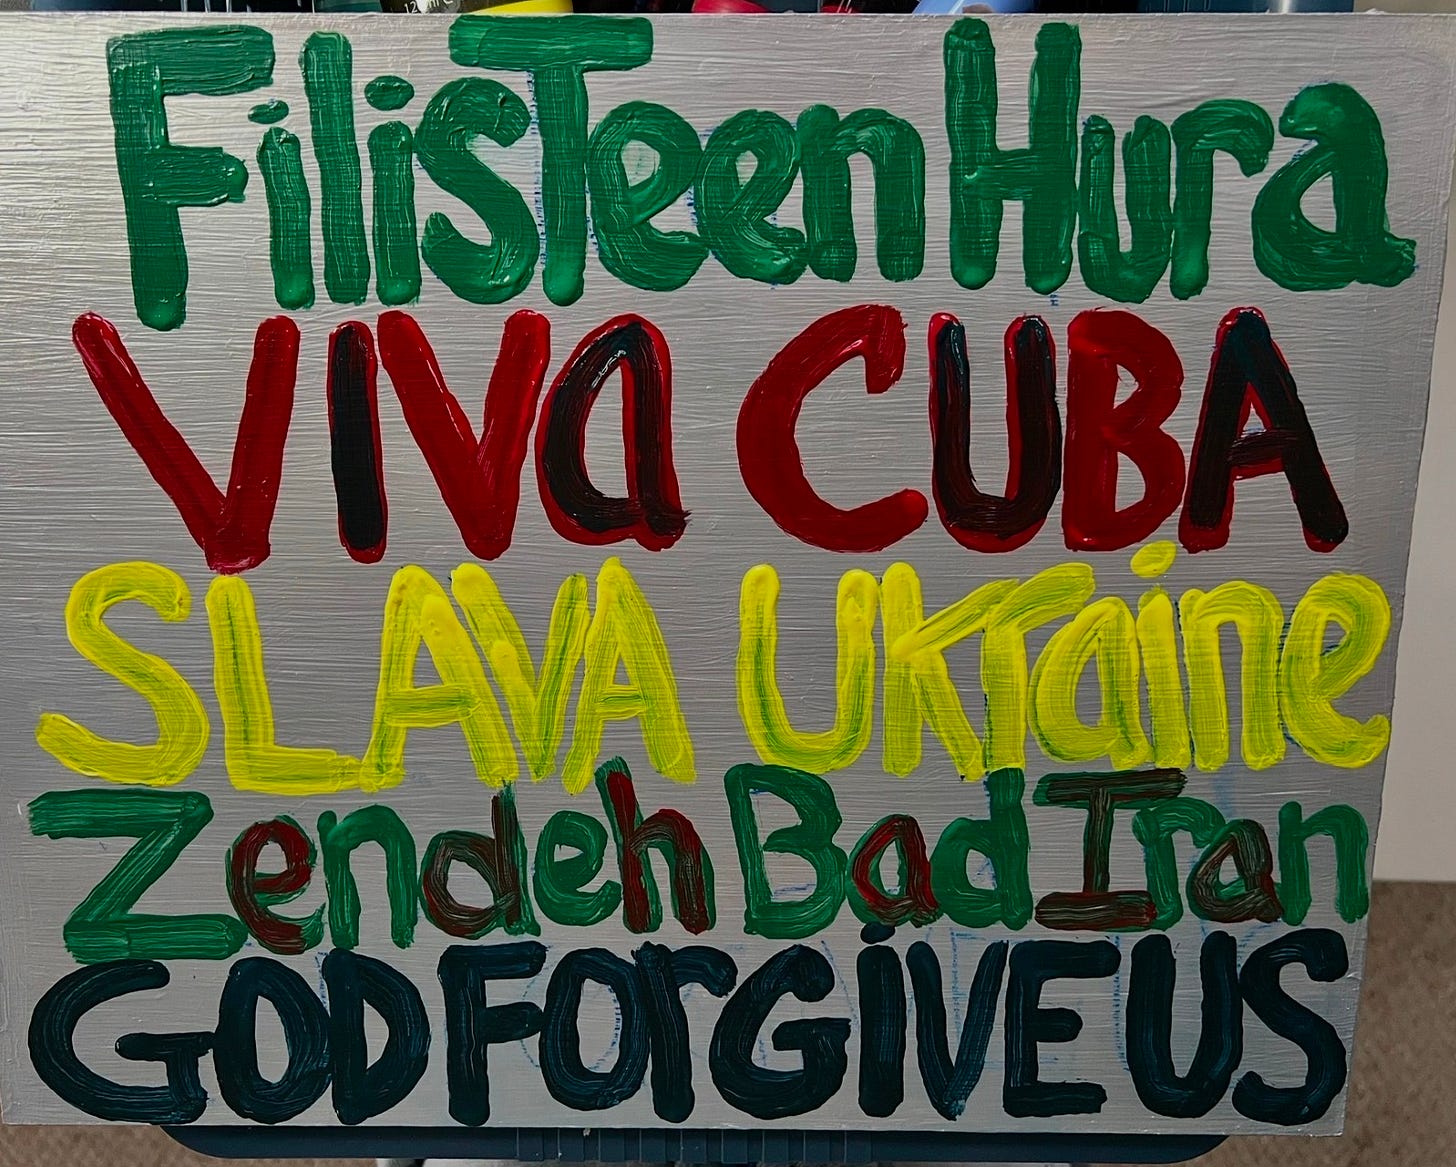 FilisTeen Hura
VIVa CUBA
SLAVA UKraine
Zendeh Bad Iran
GOD FOrGiVE US